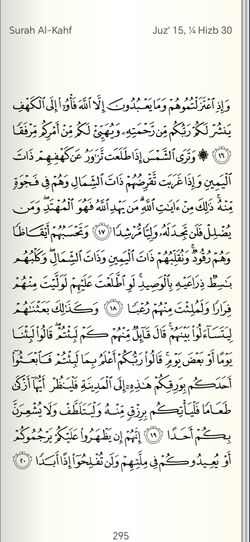 Surah Al-Kahf Juz' 15, ¼ Hizb 30
وَإِذِ ٱعْتَزَلْتُمُوهُمْ وَمَا يَعْبُدُونَ إِلَّا ٱللَّهَ فَأْوُۥٓا۟ إِلَى ٱلْكَهْفِ
يَنشُرْ لَكُمْ رَبُّكُم مِّن رَّحْمَتِهِۦ وَيُهَيِّئْ لَكُم مِّنْ أَمْرِكُم مِّرْفَقًا
١٦ ۞ وَتَرَى ٱلشَّمْسَ إِذَا طَلَعَت تَّزَٰوَرُ عَن كَهْفِهِمْ ذَاتَ
ٱلْيَمِينِ وَإِذَا غَرَبَت تَّقْرِضُهُمْ ذَاتَ ٱلشِّمَالِ وَهُمْ فِى فَجْوَةٍ
مِّنْهُ ۚ ذَٰلِكَ مِنْ ءَايَٰتِ ٱللَّهِ ۗ مَن يَهْدِ ٱللَّهُ فَهُوَ ٱلْمُهْتَدِ ۖ وَمَن
يُضْلِلْ فَلَن تَجِدَ لَهُۥ وَلِيًّا مُّرْشِدًا ١٧ وَتَحْسَبُهُمْ أَيْقَاظًا
وَهُمْ رُقُودٌ ۚ وَنُقَلِّبُهُمْ ذَاتَ ٱلْيَمِينِ وَذَاتَ ٱلشِّمَالِ ۖ وَكَلْبُهُم
بَٰسِطٌ ذِرَاعَيْهِ بِٱلْوَصِيدِ ۚ لَوِ ٱطَّلَعْتَ عَلَيْهِمْ لَوَلَّيْتَ مِنْهُمْ
فِرَارًا وَلَمُلِئْتَ مِنْهُمْ رُعْبًا ١٨ وَكَذَٰلِكَ بَعَثْنَٰهُمْ
لِيَتَسَآءَلُوا۟ بَيْنَهُمْ ۚ قَالَ قَآئِلٌ مِّنْهُمْ كَمْ لَبِثْتُمْ ۖ قَالُوا۟ لَبِثْنَا
يَوْمًا أَوْ بَعْضَ يَوْمٍ ۚ قَالُوا۟ رَبُّكُمْ أَعْلَمُ بِمَا لَبِثْتُمْ فَٱبْعَثُوٓا۟
أَحَدَكُم بِوَرِقِكُمْ هَٰذِهِۦٓ إِلَى ٱلْمَدِينَةِ فَلْيَنظُرْ أَيُّهَآ أَزْكَىٰ
طَعَامًا فَلْيَأْتِكُم بِرِزْقٍ مِّنْهُ وَلْيَتَلَطَّفْ وَلَا يُشْعِرَنَّ
بِكُمْ أَحَدًا ١٩ إِنَّهُمْ إِن يَظْهَرُوا۟ عَلَيْكُمْ يَرْجُمُوكُمْ
أَوْ يُعِيدُوكُمْ فِى مِلَّتِهِمْ وَلَن تُفْلِحُوٓا۟ إِذًا أَبَدًا ٢٠
295